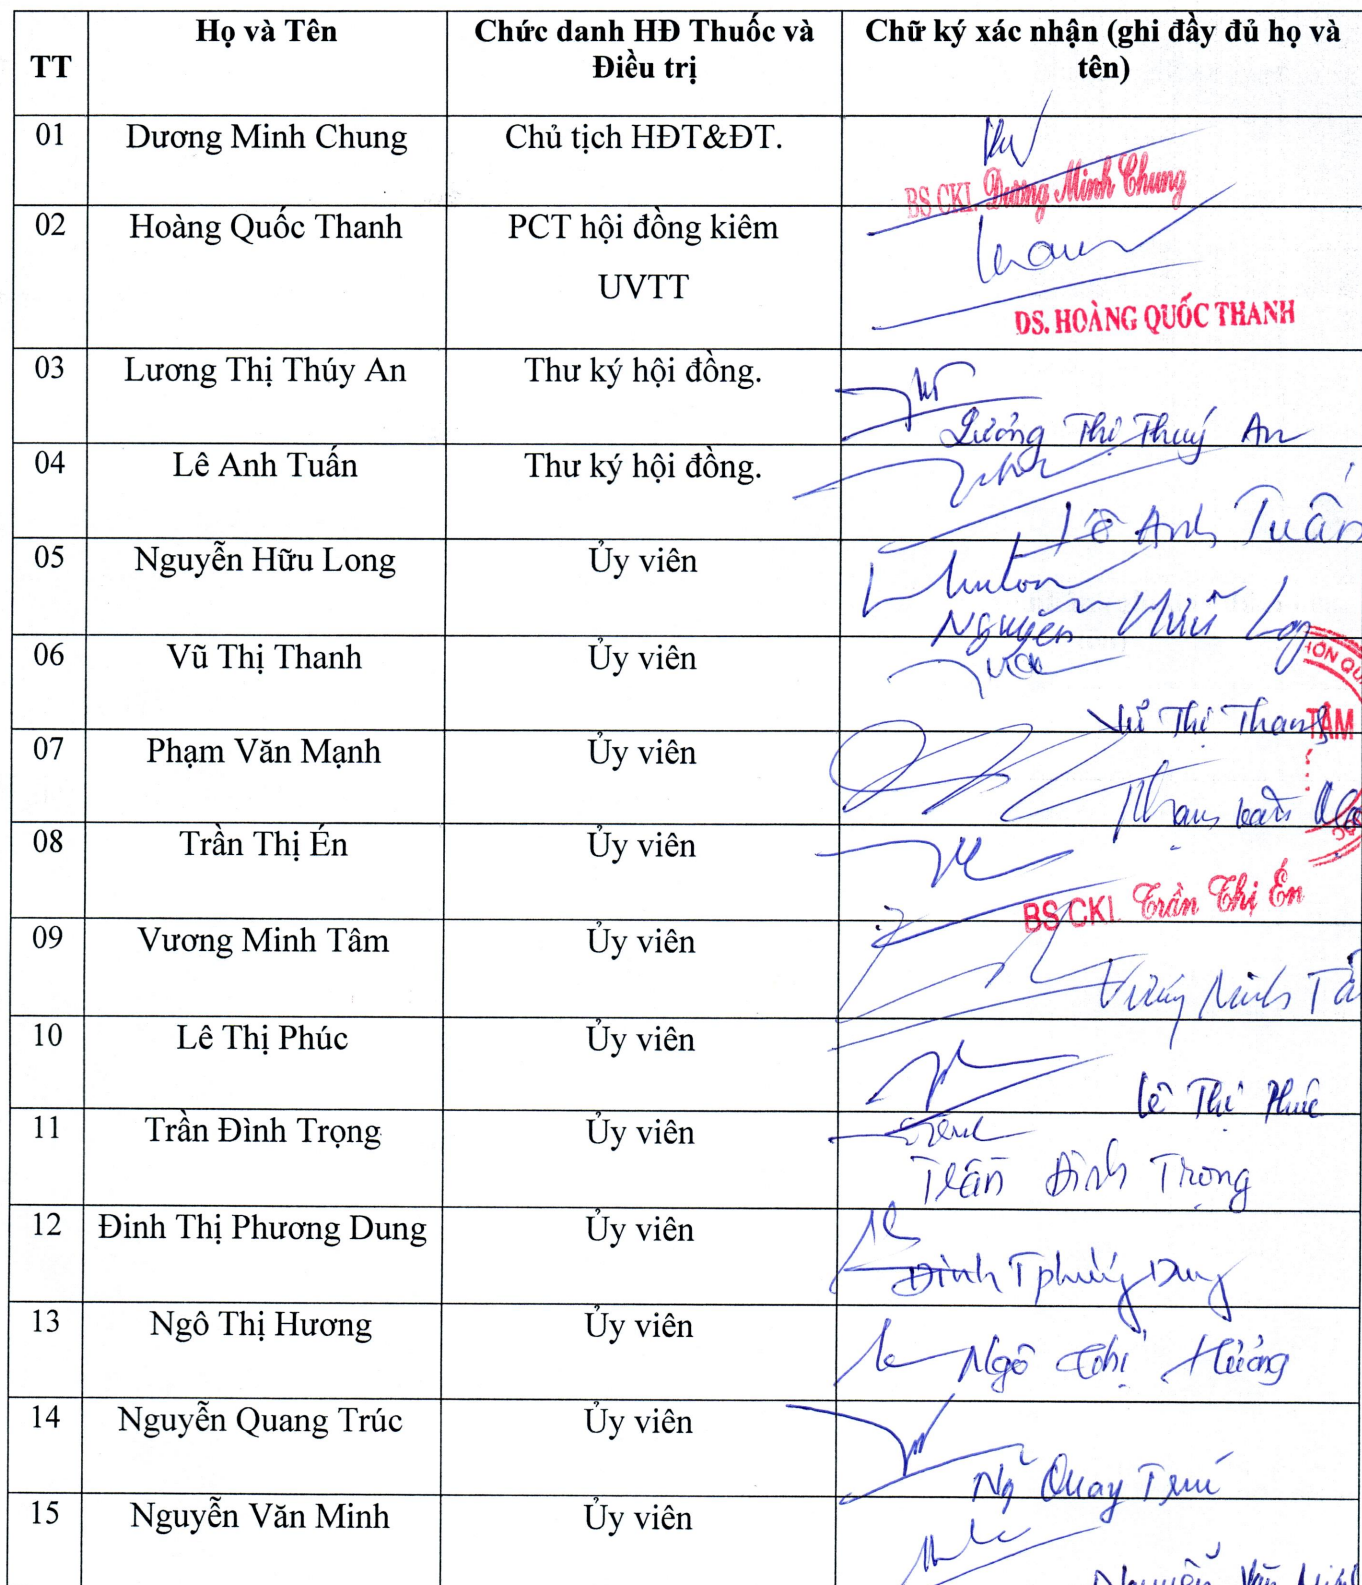 TT Họ và Tên Chức danh HĐ Thuốc và Điều trị Chữ ký xác nhận (ghi đầy đủ họ và tên)
01 Dương Minh Chung Chủ tịch HĐT&ĐT.
BS CKI. Dương Minh Chung
02 Hoàng Quốc Thanh PCT hội đồng kiêm
UVTT
DS. HOÀNG QUỐC THANH
03 Lương Thị Thúy An Thư ký hội đồng.
Lương Thị Thuý An
04 Lê Anh Tuấn Thư ký hội đồng.
Lê Anh Tuấn
05 Nguyễn Hữu Long Ủy viên
Nguyễn Hữu Long
06 Vũ Thị Thanh Ủy viên
Vũ Thị Thanh
TÂM
07 Phạm Văn Mạnh Ủy viên
Phạm Văn
08 Trần Thị Én Ủy viên
BS CKI. Trần Thị Én
09 Vương Minh Tâm Ủy viên
Vương Minh Tâ
10 Lê Thị Phúc Ủy viên
Lê Thị Phúc
11 Trần Đình Trọng Ủy viên
Trần Đình Trọng
12 Đinh Thị Phương Dung Ủy viên
Đinh T phương Dung
13 Ngô Thị Hương Ủy viên
Ngô Thị Hương
14 Nguyễn Quang Trúc Ủy viên
Ng Quang Trúc
15 Nguyễn Văn Minh Ủy viên
Nguyễn Văn Minh